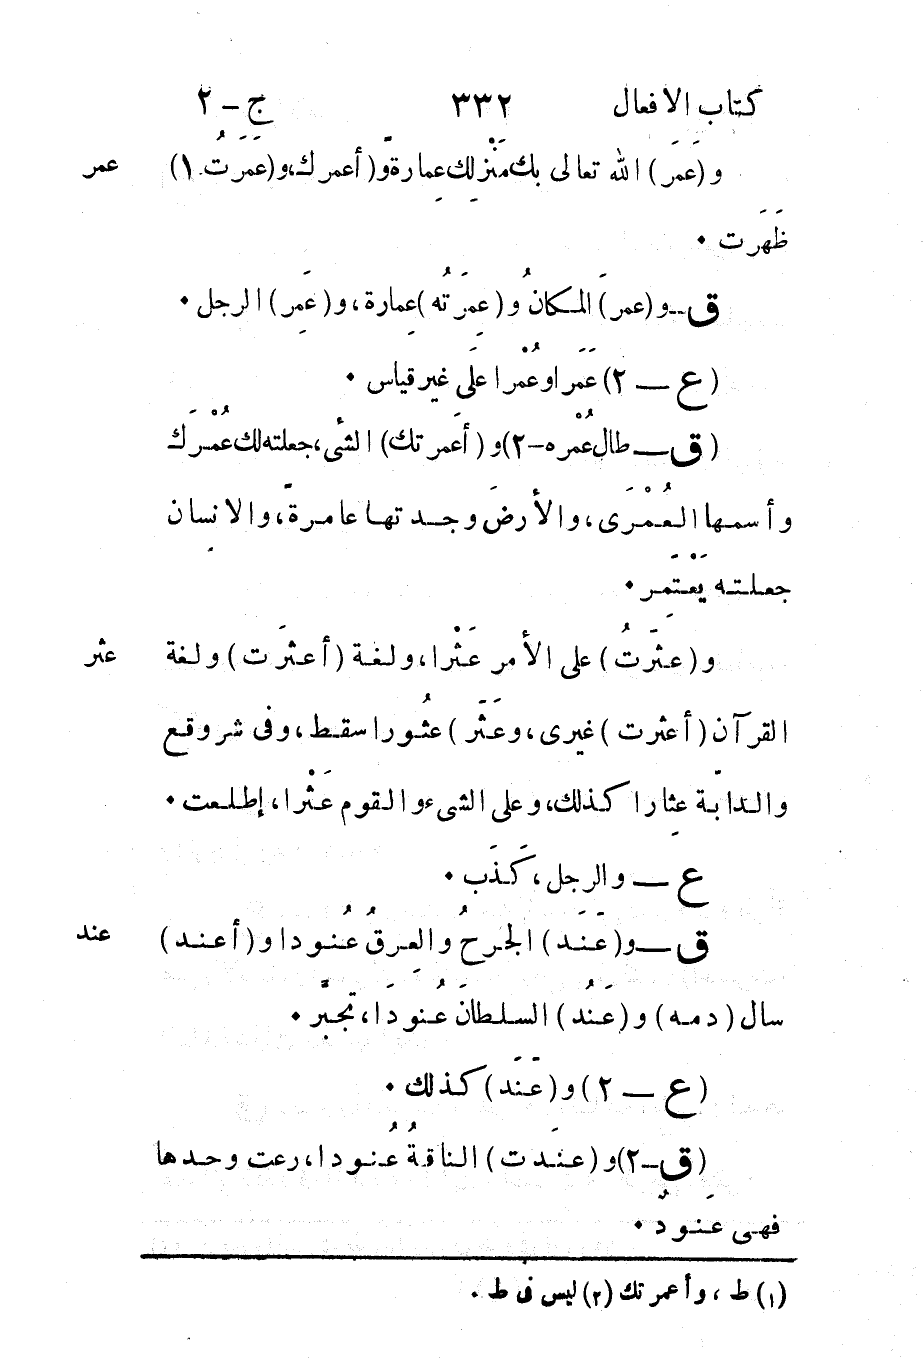 كتاب الافعال ٣٣٢ ج – ٢
و (عَمَرَ) الله تعالى بك مَنْزِلك عِمارةً و (أعمرك، و (عَمَرَتُ ١) عمر
ظَهَرَت •
ق – و (عمرَ) المكانُ و (عمِرَتُه) عِمارة، و (عمِرَ) الرجل •
(ع – ٢) عَمَرا وعُمْرا علَى غير قياس •
(ق – طال عُمْره – ٢) و (أعمَرتك) الشئَ، جعلته لك عُمْرَك
وأسمها العُمْرَى، والأرضَ وجدتها عامرةً، والانسان
جعلته يَعْتَمِر •
و (عثَرتُ) على الأمر عَثْرا، ولغة (أعثَرَت) ولغة عثر
القرآن (أعثرت) غيرى، وعَثَر) عثُورا سقط، وفى شر وقع
والدابّة عِثارا كذلك، وعلى الشىء والقوم عَثْرا، إطلعت •
ع – والرجل، كَذَب •
ق – و (عَنَد) الجرحُ والعِرقُ عُنُودا و (أعند) عند
سال (دمه) و (عَنُد) السلطانَ عُنودَا، تجبَّر •
(ع – ٢) و (عَنَد) كذلك •
(ق – ٢) و (عنَدت) الناقةُ عُنودا، رعت وحدها
فهى عَنودٌ •
(١) ط، وأعمرتك (٢) ليس فى ط •